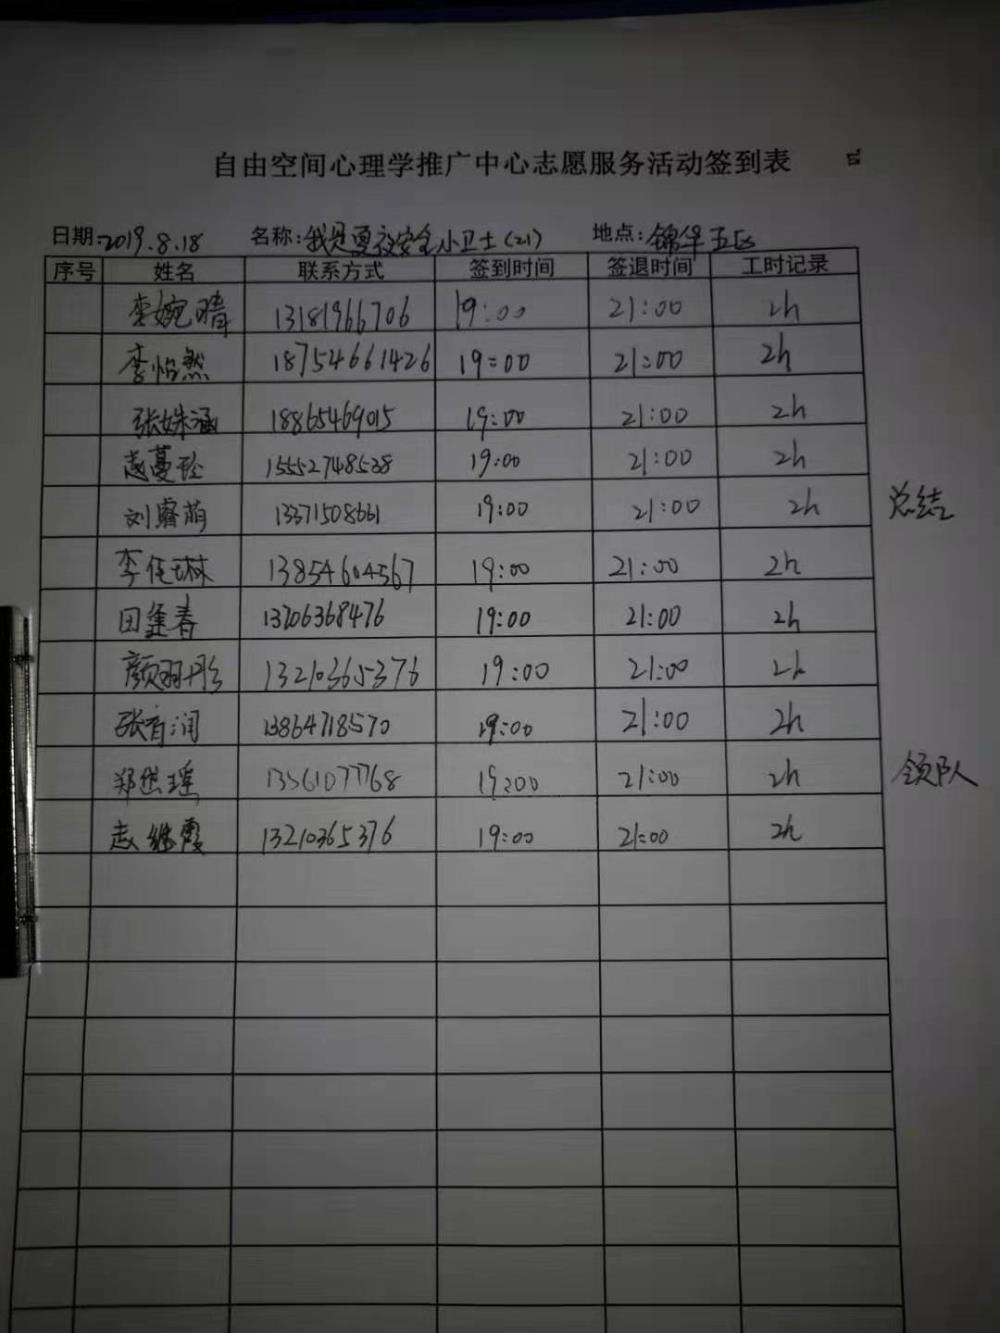 自由空间心理学推广中心志愿服务活动签到表
日期:2019.8.18 名称:我是夏夜安全小卫士(21) 地点:锦华五区
序号 姓名 联系方式 签到时间 签退时间 工时记录
李婉晴 13181966706 19:00 21:00 2h
李怡然 18754661426 19:00 21:00 2h
张姝涵 18865469015 19:00 21:00 2h
赵蔓 15552748538 19:00 21:00 2h
刘睿萌 13371508661 19:00 21:00 2h 总结
李佳琳 13854604567 19:00 21:00 2h
田逢春 13706368476 19:00 21:00 2h
颜羽彤 13210365376 19:00 21:00 2h
张育润 13864718570 19:00 21:00 2h
郑瑶 13561077768 19:00 21:00 2h 领队
赵继霞 13210365376 19:00 21:00 2h